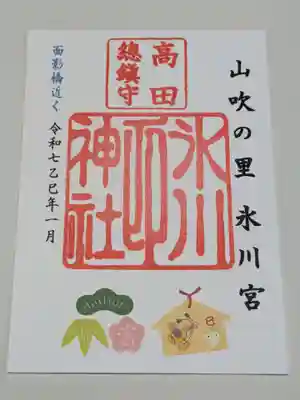 山吹の里 氷川宮
高田
總鎮守
氷川
神社
面影橋近く 令和七乙巳年一月